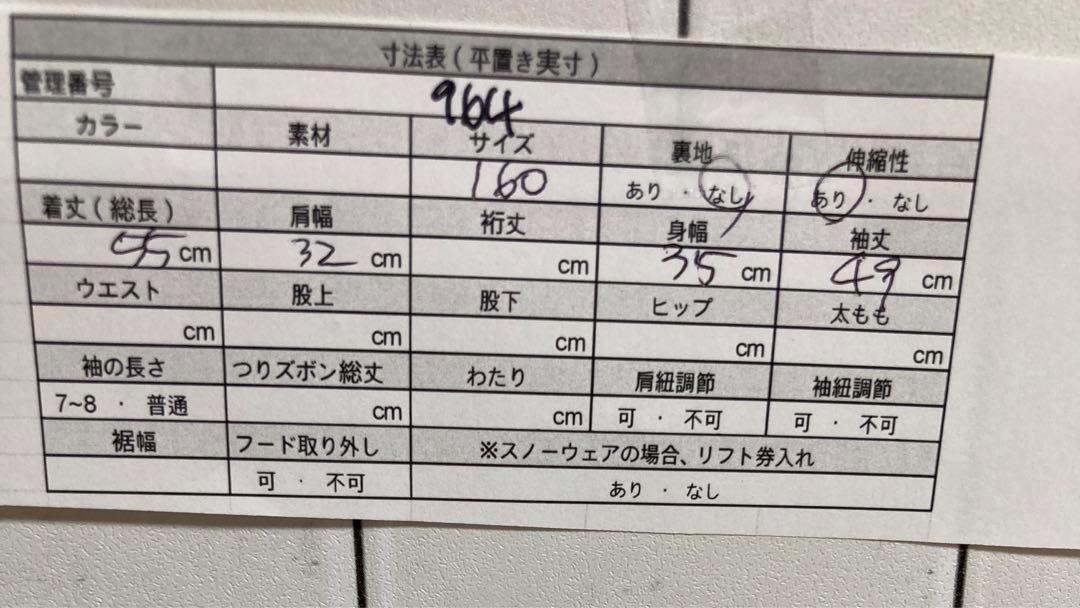 寸法表(平置き実寸)
管理番号 964
カラー 素材 サイズ 裏地 伸縮性
160 あり ・ なし あり ・ なし
着丈(総長) 肩幅 裄丈 身幅 袖丈
55 cm 32 cm cm 35 cm 49 cm
ウエスト 股上 股下 ヒップ 太もも
cm cm cm cm cm
袖の長さ つりズボン総丈 わたり 肩紐調節 袖紐調節
7~8 ・ 普通 cm cm 可 ・ 不可 可 ・ 不可
裾幅 フード取り外し ※スノーウェアの場合、リフト券入れ
可 ・ 不可 あり ・ なし